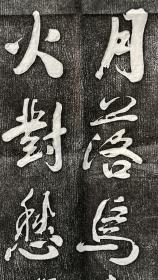 月落烏
火對愁